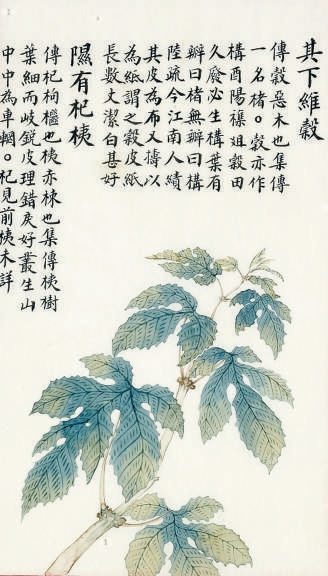 其下維榖
傳榖惡木也集傳
一名楮。榖亦作
構酉陽襍俎榖田
久廢必生構葉有
瓣曰楮無瓣曰構
陸疏今江南人績
其皮為布又擣以
為紙謂之榖皮紙
長數丈潔白甚好
隰有杞桋
傳杞枸檵也桋赤楝也集傳桋樹
葉細而岐銳皮理錯戾好叢生山
中中為車輞。杞見前桋未詳